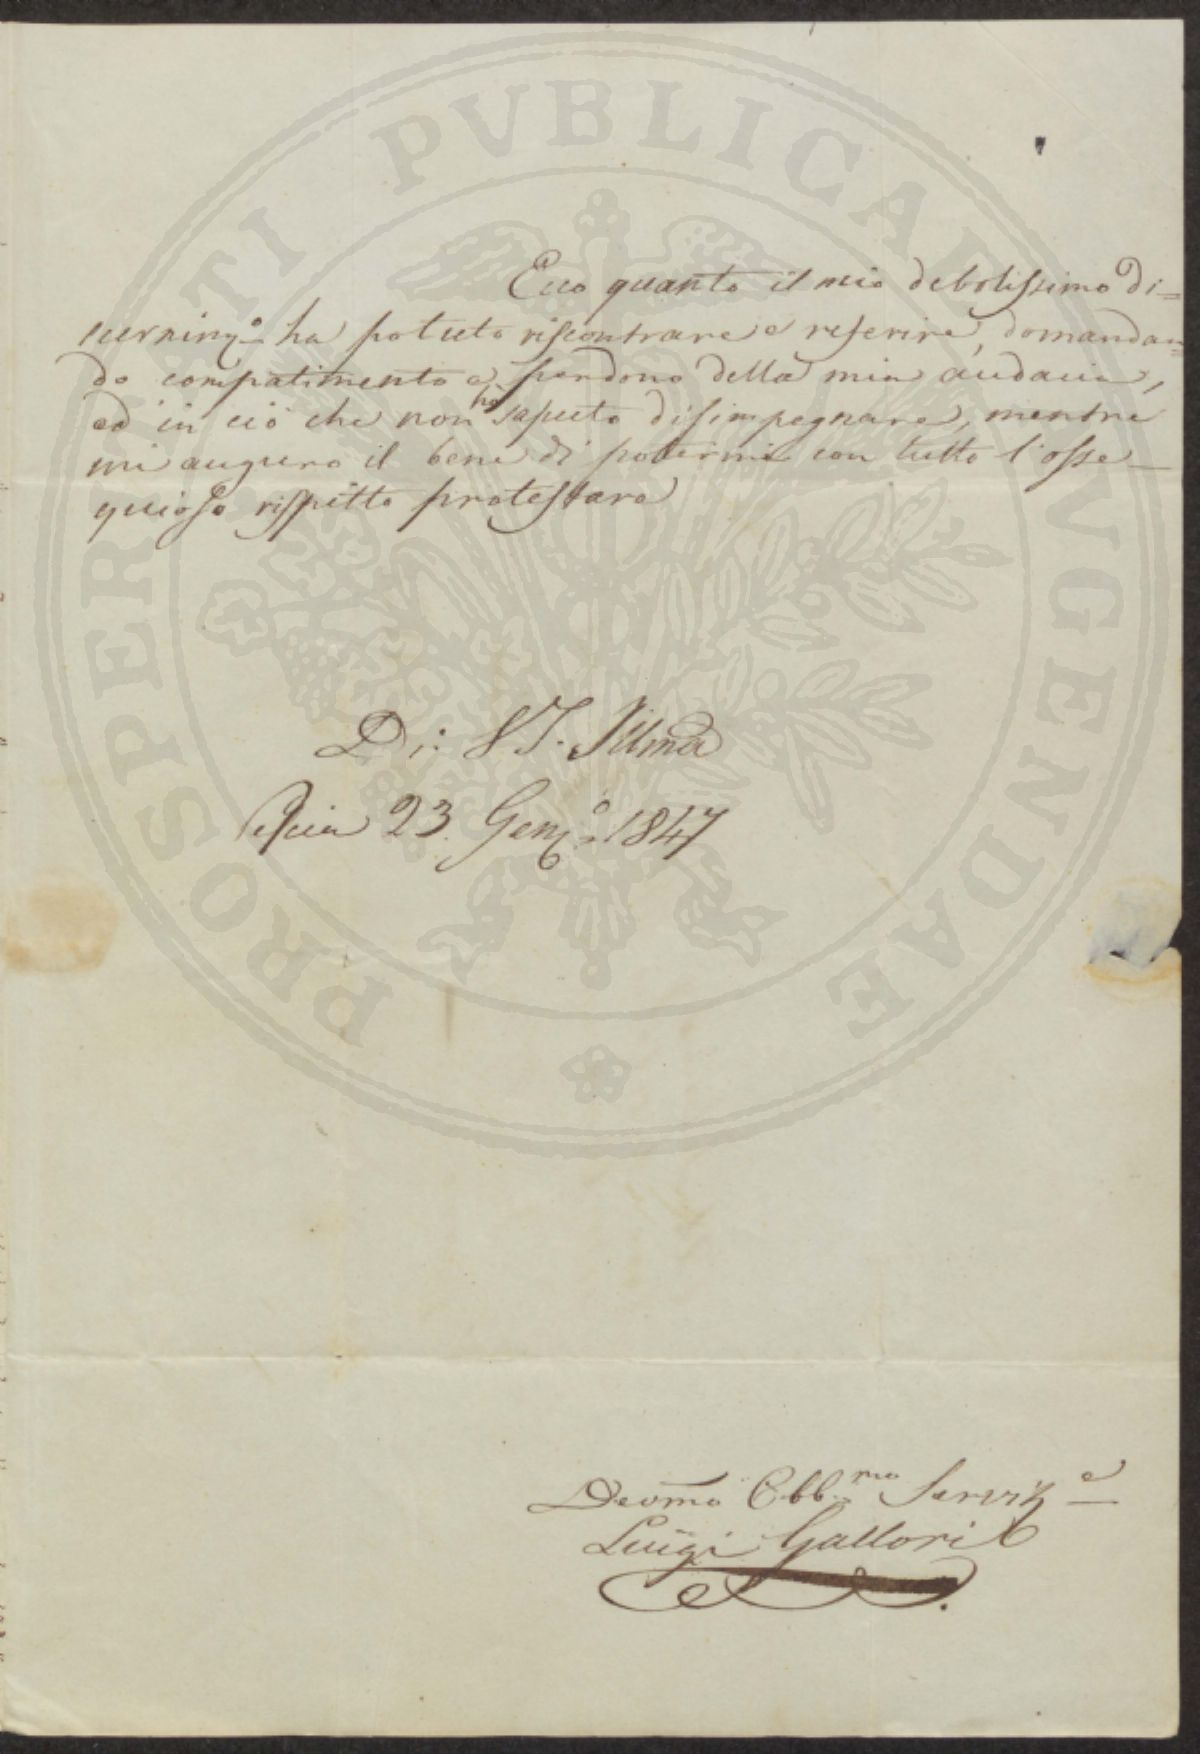 Ecco quanto il mio debolissimo di=
scernim.o ha potuto riscontrare e referire, domandan=
do compatimento e perdono della mia audacia,
ed in ciò che non ho saputo disimpegnare, mentre
mi auguro il bene di potermi con tutto l'osse
quioso rispetto protestare
Di: S. Illma
23. Genn.o 1847
Devmo Obb.mo Servit.e
Luigi Gallori
PROSPERITATI PVBLICAE AVGENDAE